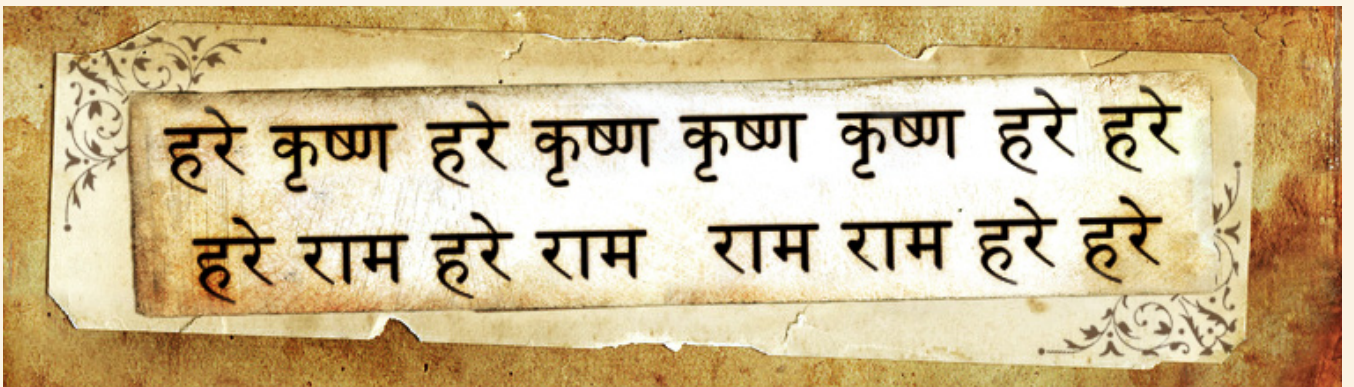 हरे कृष्ण हरे कृष्ण कृष्ण कृष्ण हरे हरे
हरे राम हरे राम राम राम हरे हरे